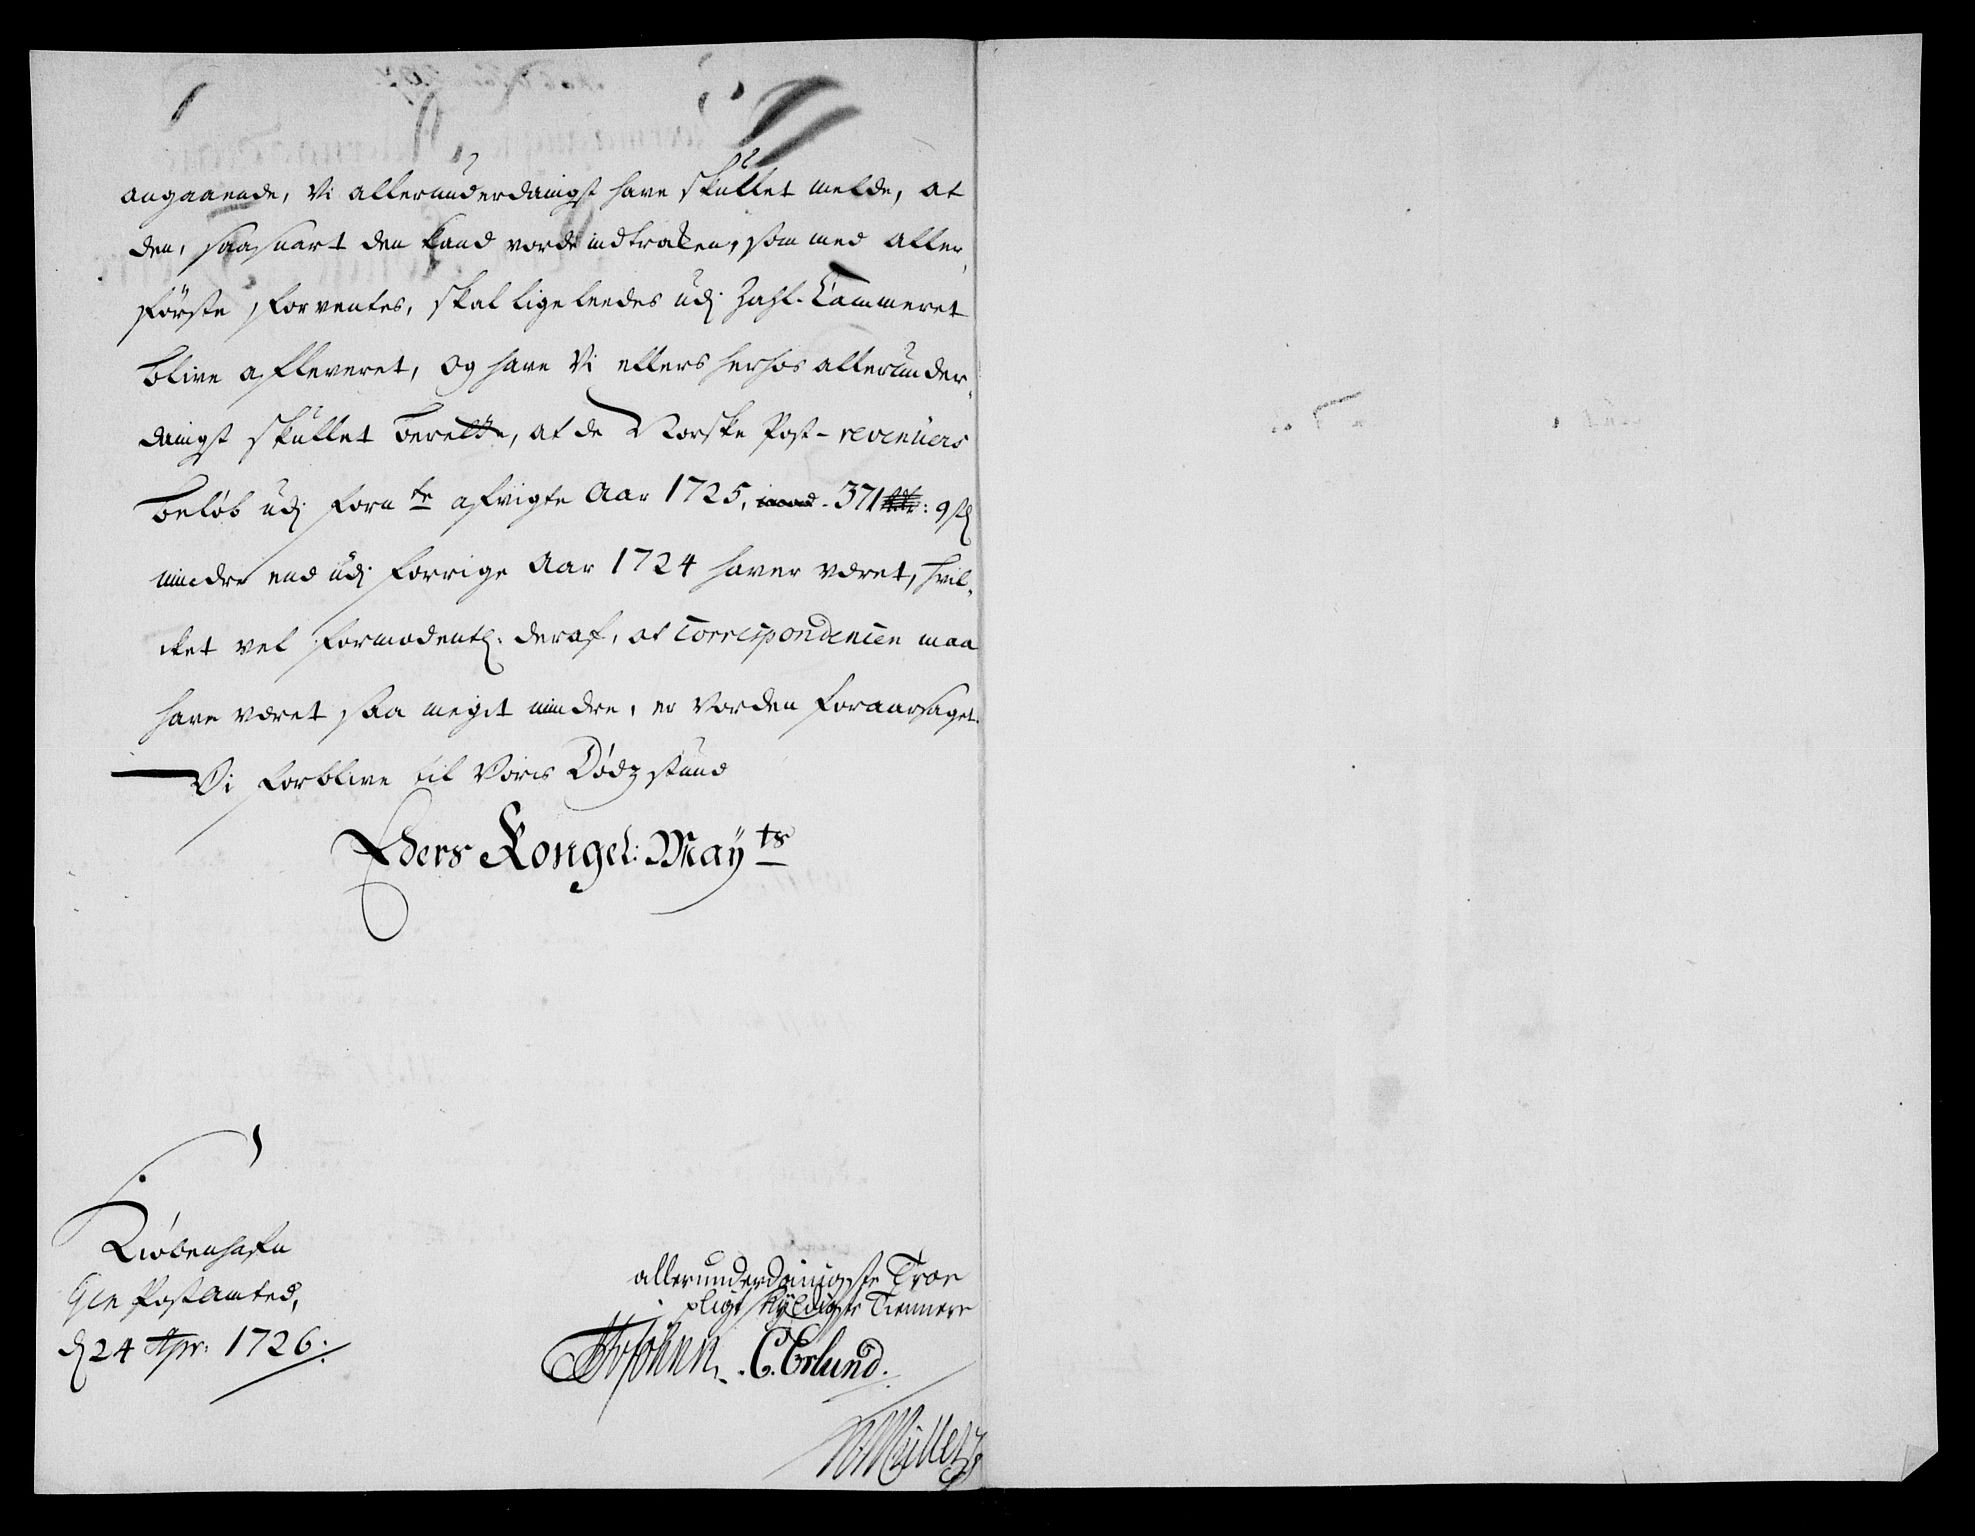 angaaende, Vi allerunderdanigst have skullet melde, at
den, saasnart den kand vorde indtraken, som med aller
förste forventes, skal ligeleedes udj Zahl-Cammeret
blive afleveret, og have Vi ellers herhos allerunder-
danigst skullet berette, at de Norske Post-revenüers
Beløb udj forn te afvigte Aar 1725, 371 : 9 s
mindre end udj forrige Aar 1724 haver været, hvil-
cket vel formodentl. deraf, at Correspondencen maa
have været saa meget mindre, er vorden foraarsaget.
Vi forblive til Voris Dödz stund
Eders Kongel: May ts
Kiøbenhafn
Gen Postamted,
d 24 Apr: 1726.
allerunderdanigste Troe
pligtskyldigste Tiennere
C. Erlund.
Müller